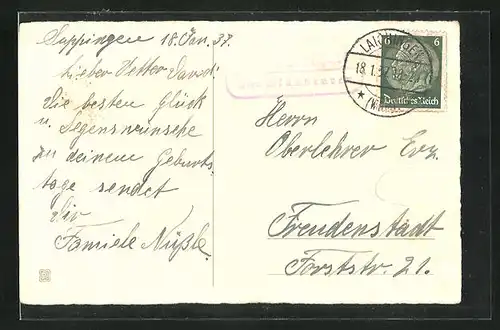 Suppingen 18. Jan. 37.
Lieber Vetter
Die besten Glück
u. Segenswünsche
zu deinem Geburts
tage sendet
Dir
Familie Nüßle.
6 6
Deutsches Reich
LAICHINGEN
18.1.37
Herrn
Oberlehrer
Freudenstadt
Forststr. 21.